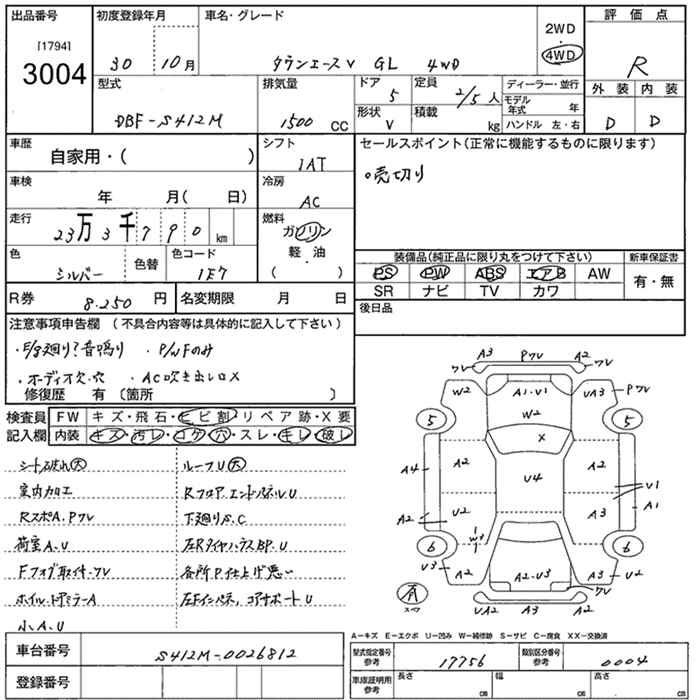 出品番号
[1794]
3004
初度登録年月
30 10月
車名・グレード
タウンエースV GL 4WD
2WD
4WD
評価点
R
外装 内装
D D
型式
DBF-S412M
排気量
1500 CC
ドア
5
定員
2/5人
形状
V
積載
kg
ディーラー・並行
モデル年式 年
ハンドル 左・右
車歴
自家用・( )
シフト
1AT
セールスポイント(正常に機能するものに限ります)
○売切り
車検
年 月( 日)
冷房
AC
走行
23万3千790km
燃料
ガソリン
軽・油
( )
色
シルバー
色替
色コード
1E7
装備品(純正品に限り丸をつけて下さい)
PS PW ABS エアB AW
SR ナビ TV カワ
新車保証書
有・無
R券
8.250円
名変期限 月 日
後日品
注意事項申告欄(不具合内容等は具体的に記入して下さい)
・E/g廻り?音鳴り ・P/W Fのみ
・オーディオ欠・穴 ・AC吹き出し口X
修復歴 有〔箇所 〕
検査員記入欄
FW キズ・飛石・ヒビ割・リペア跡・X要
内装 キズ・汚レ・コゲ・穴・スレ・キレ・破レ
シート破れ大
ルーフU大
室内加工
Rフロア、エンドパネルU
RスポA、Pワレ
下廻りS、C
荷室A、U
左RタイヤハウスBP、U
Fフォグ取付・ワレ
各所P仕上げ悪い
ホイル、ドアミラーA
左Fインパネ、コアサポートU
小A、U
A3 Pワレ A2
ワレ ワレ
W2 A1・V1 UA3 Pワレ
W2
5 5
X
A4 A2 A2
U4
V1
A1
A2 U2 A3
W3
6 6
U3 A2 A2・U3 A3 U2
有
スペア
UA2 ワレ A2
A-キズ E-エクボ U-凹み W-補修跡 S-サビ C-腐食 XX-交換済
車台番号
S412M-0026812
登録番号
型式指定番号 参考
17756
類別区分番号 参考
0004
車庫証明用 参考
長さ cm
幅 cm
高さ cm